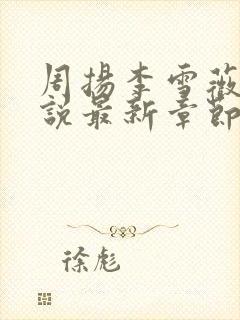 周扬李雪薇
說最新章節
徐彪